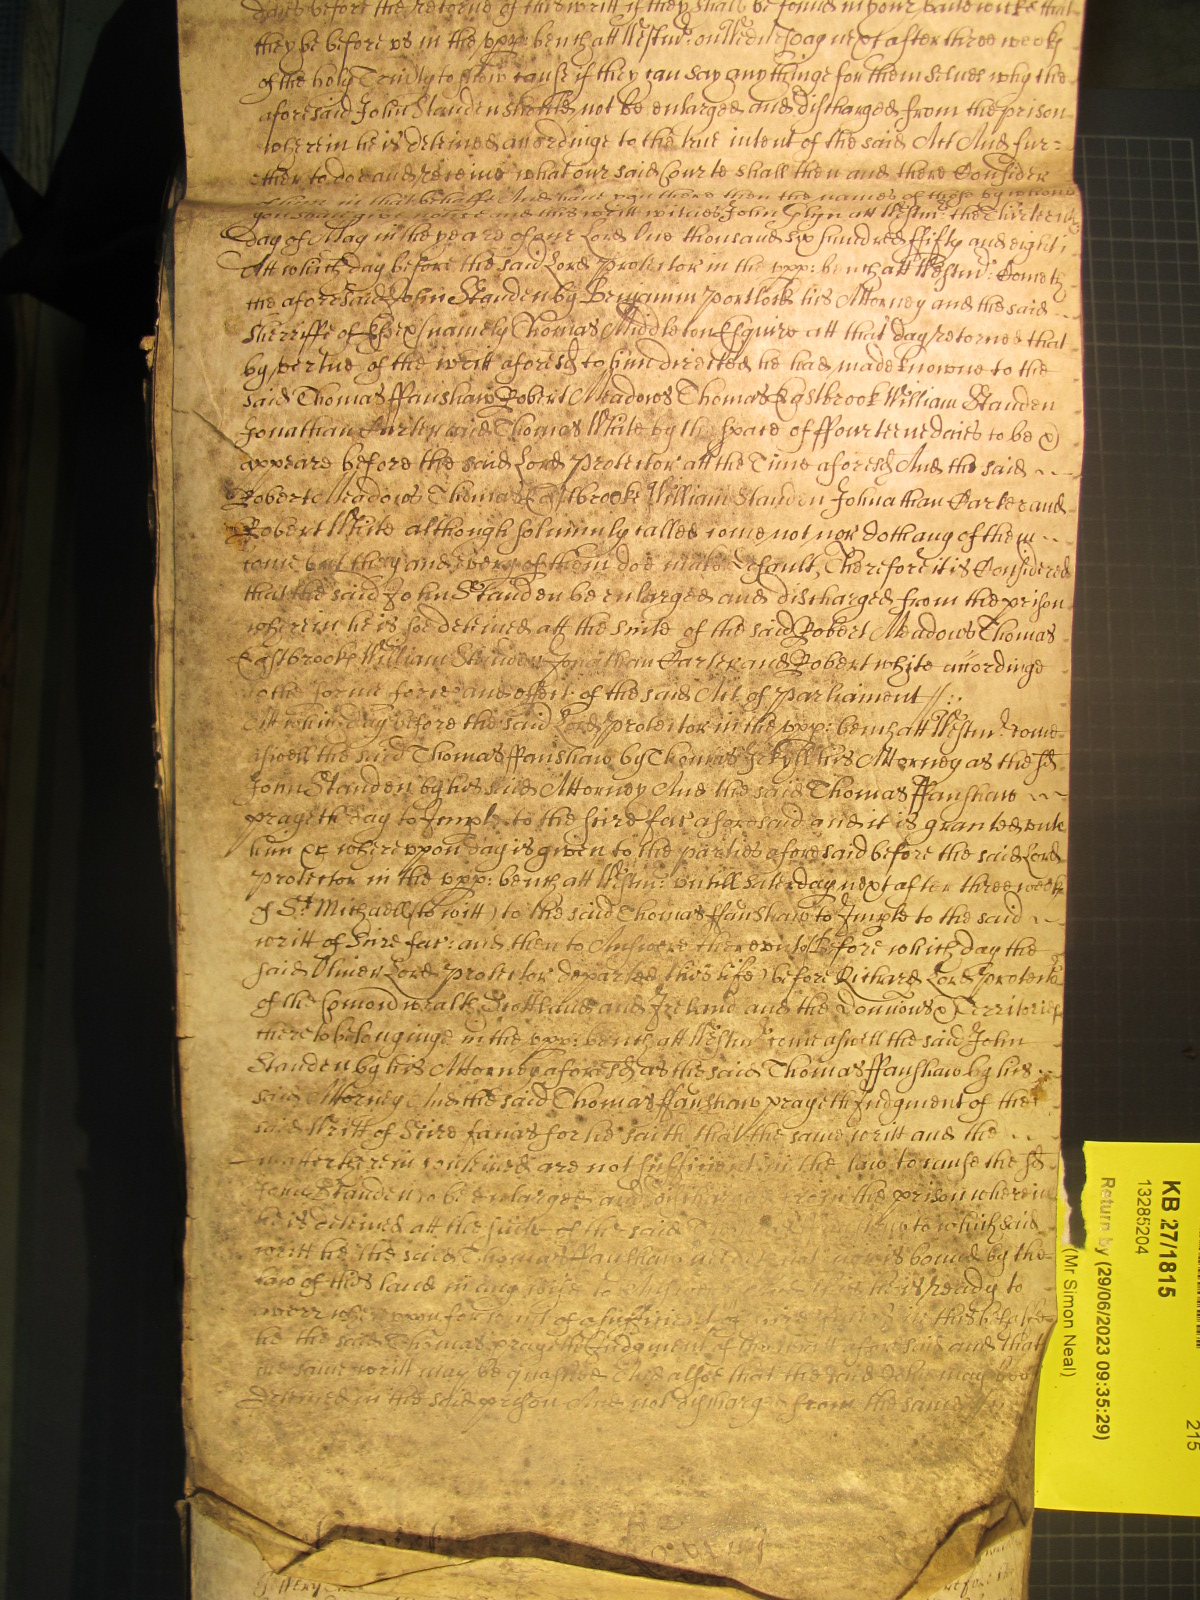 daies before the returne of this writt if they shall be found in your Baliwicke that
they be before us in the upp: bench att Westmr: on Wednesday next after three weeks
of the holy Trinity to shew cause if they can say any thinge for themselves why the
aforesaid John Standen should not be enlarged and discharged from the prison
wherein he is deteined accordinge to the true intent of the said Act And fur=
ther to doe and receive what our said Courte shall then and there Consider
of him in that behalfe And have you there then the names of those by whome
you shall give notice and this writt witnes John Glyn att Westmr: the thirteenth
day of May in the yeare of our Lord One thousand six hundred fifty and eight
Att which day before the said Lord Protector in the upp: bench att Westmr: Cometh
the aforesaid John Standen by Benjamin Portlock his Attorney and the said
Sherriffe of Essex (namely Thomas Middleton Esquire att that day returned that
by vertue of the writt aforesd to him directed he had made knowne to the
said Thomas ffanshaw Robert Meadows Thomas Eastbrook William Standen
Jonathan Carter and Thomas White by the space of ffourteene daies to be &
appeare before the said Lord Protector att the Time aforesd And the said
Robert Meadows Thomas Eastbrooke William Standen Johnathan Carter and
Robert White although solemnly called come not nor doth any of them
come but they and every of them doe make Default, Therefore it is Considered
that the said John Standen be enlarged and discharged from the prison
wherein he is soe deteined att the suite of the said Robert Meadows Thomas
Eastbrooke William Standen Jonathan Carter and Robert white accordinge
to the forme force and effect of the said Act of Parliament
Att which day before the said Lord protector in the upp: bench att Westmr come
aswell the said Thomas ffanshaw by Thomas Jekyll his Attorney as the sd
John Standen by his said Attorney And the said Thomas ffanshaw
prayeth day to Imple to the scire fac aforesaid and it is granted unto
him &c whereuppon day is given to the parties aforesaid before the said Lord
Protector in the upp: bench att Westmr: untill Saterday next after three weeks
of St Michaell (to witt) to the said Thomas ffanshaw to Imple to the said
writt of Scire fac: and then to Answere thereunto (Before which day the
said Oliver Lord Protector departed this life) before Richard Lord Protector
of the Comonwealth Scottland and Ireland and the Domions & Territories
thereto belonginge in the upp: bench att Westmr come aswell the said John
Standen by his Attorney aforesd as the said Thomas ffanshaw by his
said Attorney And the said Thomas ffanshaw prayeth Judgment of the
said Writt of Scire facias for he saith that the same writt and the
matter therein conteined are not sufficient in the law to cause the sd
John Standen to be enlarged and discharged from the prison wherein
he is deteined att the suite of the said to which said
writt he the said Thomas ffanshaw is bound by the
law of this land in any wise to he is ready to
whereuppon for want of a sufficient in this behalfe
he the said Thomas prayeth Judgment of the writt aforesaid and that
the same writt may be quashed And alsoe that the said John may bee
deteined in the said prison And not discharged from the same
KB 27/1815
13285204
Return by (29/06/2023 09:35:29)
(Mr Simon Neal)
215